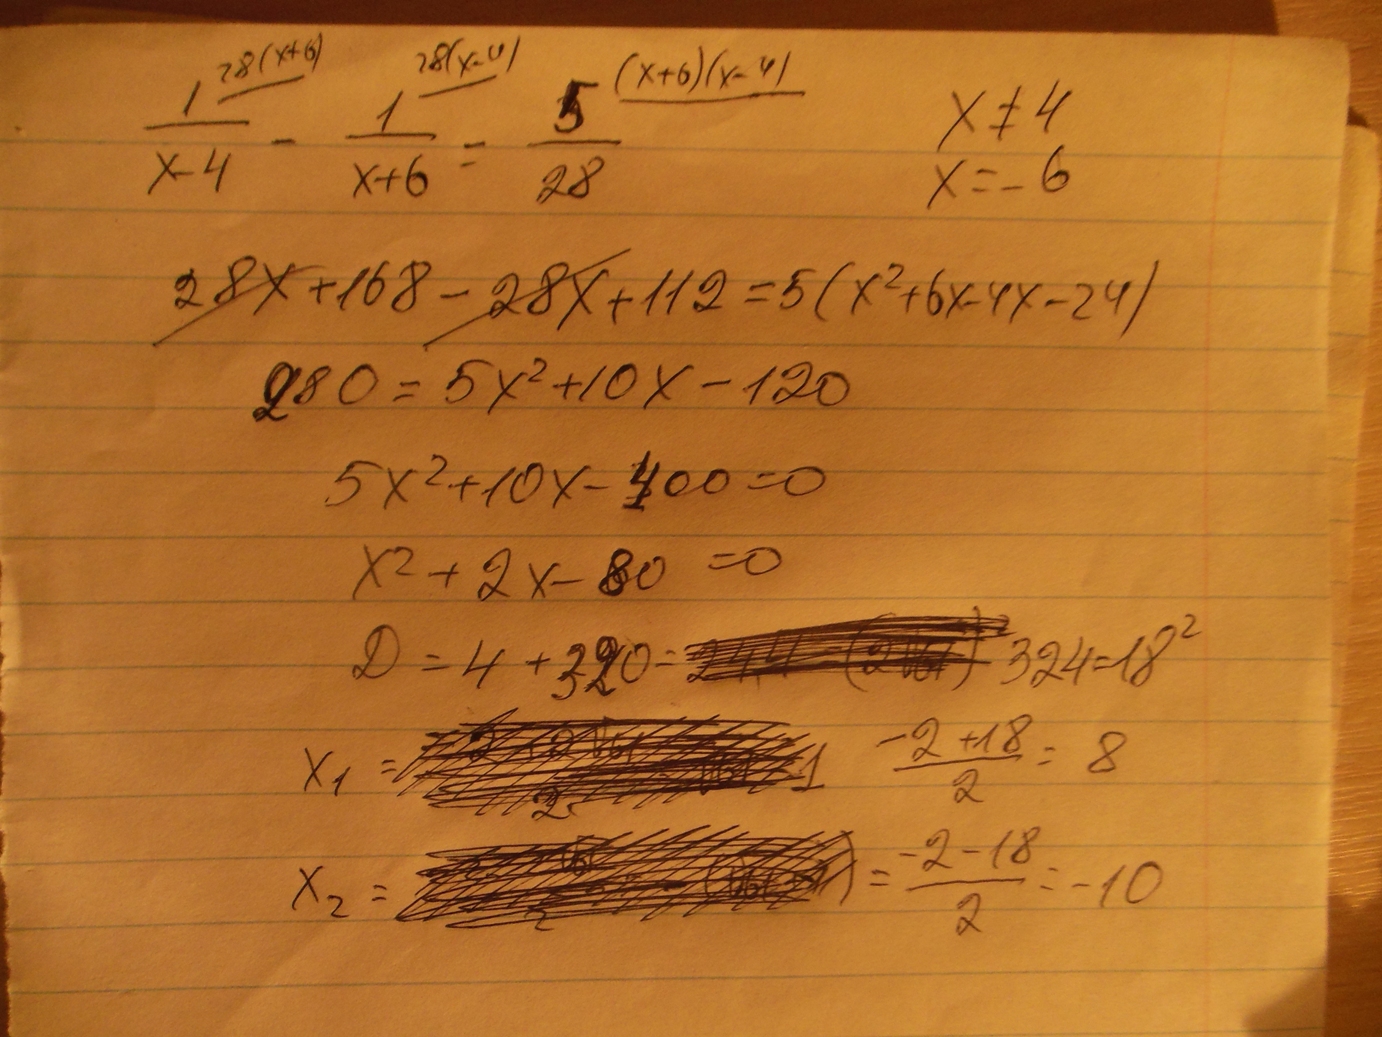 1/(x-4) 28(x+6) - 1/(x+6) 28(x-4) = 5/28 (x+6)(x-4) x≠4
x=-6
28x+168-28x+112=5(x²+6x-4x-24)
280=5x²+10x-120
5x²+10x-400=0
x²+2x-80=0
D=4+320= 324=18²
x₁= (-2+18)/2=8
x₂= =(-2-18)/2=-10